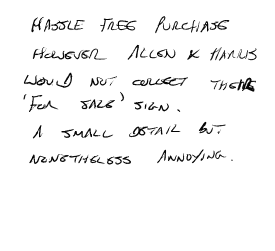 HASSLE FREE PURCHASE
HOWEVER ALLEN & HARRIS
WOULD NOT COLLECT THEIR
'FOR SALE' SIGN.
A SMALL DETAIL BUT
NONETHELESS ANNOYING.